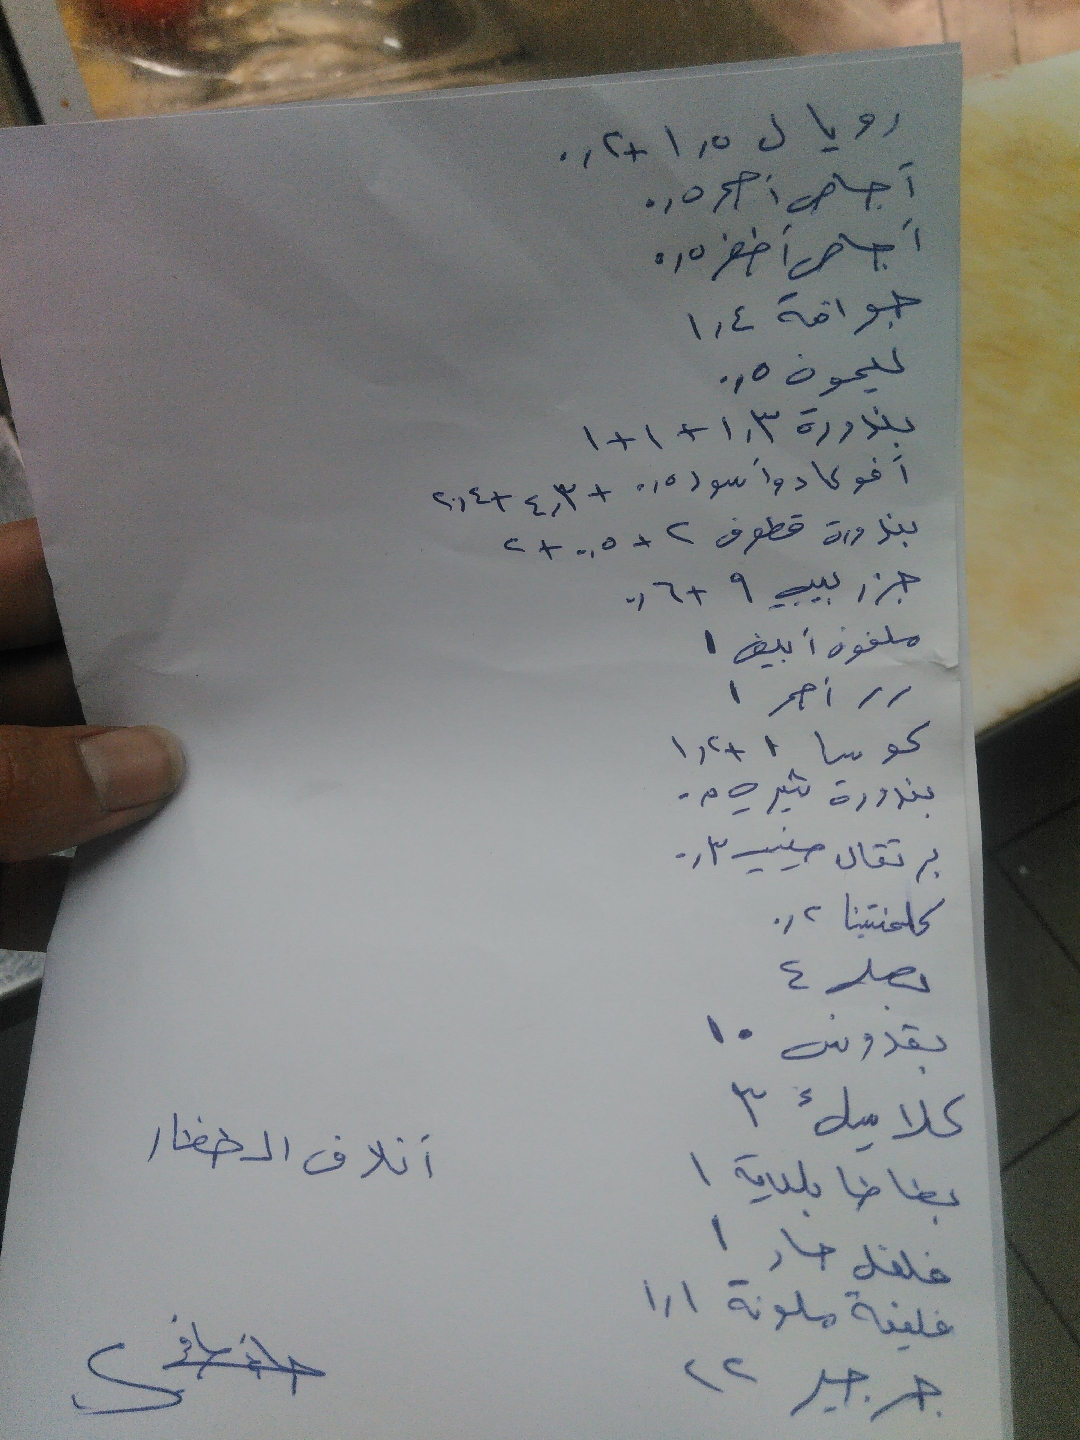 رويال ١,٥ + ٠,٢
أجاص أحمر ٠,٥
أجاص أخضر ٠,٥
جوافة ١,٤
ليمون ٠,٥
بندورة ١,٣ + ١ + ١
أفوكادو أسود ٠,٥ + ٤,٣ + ٢,٤
بندورة قطوف ٢ + ٠,٥ + ٢
جزر بيبي ٩ + ٠,٦
ملفوف أبيض ١
// أحمر ١
كوسا ١ + ١,٢
بندورة شيري ٠,٥
برتقال صيني ٠,٣
كلمنتينا ٠,٢
بصل ٤
بقدونس ١٠
كلاسيك ٣
أتلاف الخضار
بطاطا بلدية ١
فلفل حار ١
فليفلة ملونة ١,١
جرجير ٢٢